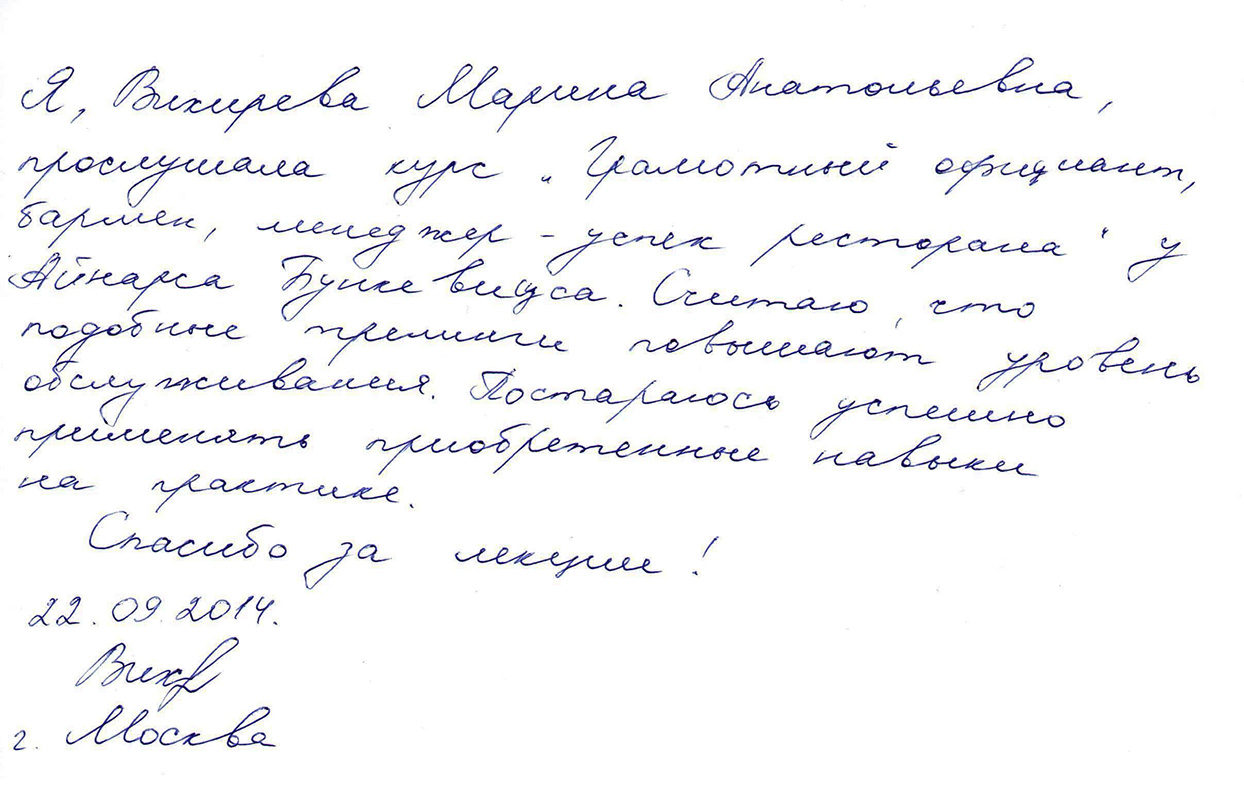 Я, Вихирева Марина Анатольевна,
прослушала курс „Грамотный официант,
бармен, менеджер - успех ресторана" у
Айнарса Бункевицса. Считаю, что
подобные тренинги повышают уровень
обслуживания. Постараюсь успешно
применять приобретенные навыки
на практике.
Спасибо за лекции!
22.09.2014.
г. Москва